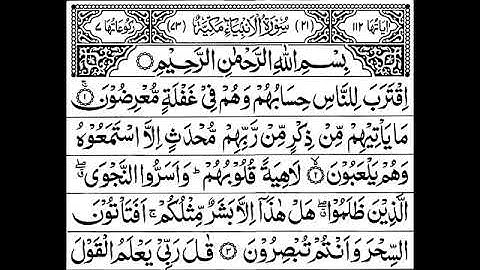 اٰيَاتُهَا ١١٢ (٢١) سُوْرَةُ الْاَنْۢبِيَآءِ مَكِّيَّةٌ (٧٣) رُكُوْعَاتُهَا ٧
بِسْمِ اللّٰهِ الرَّحْمٰنِ الرَّحِيْمِ ○
اِقْتَرَبَ لِلنَّاسِ حِسَابُهُمْ وَهُمْ فِيْ غَفْلَةٍ مُّعْرِضُوْنَ ۚ﴿١﴾
مَا يَاْتِيْهِمْ مِّنْ ذِكْرٍ مِّنْ رَّبِّهِمْ مُّحْدَثٍ اِلَّا اسْتَمَعُوْهُ
وَهُمْ يَلْعَبُوْنَ ۙ﴿٢﴾ لَاهِيَةً قُلُوْبُهُمْ ؕ وَاَسَرُّوا النَّجْوَى ۖۗ
الَّذِيْنَ ظَلَمُوْا ۖۗ هَلْ هٰذَاۤ اِلَّا بَشَرٌ مِّثْلُكُمْ ۚ اَفَتَاْتُوْنَ
السِّحْرَ وَاَنْتُمْ تُبْصِرُوْنَ ﴿٣﴾ قٰلَ رَبِّيْ يَعْلَمُ الْقَوْلَ